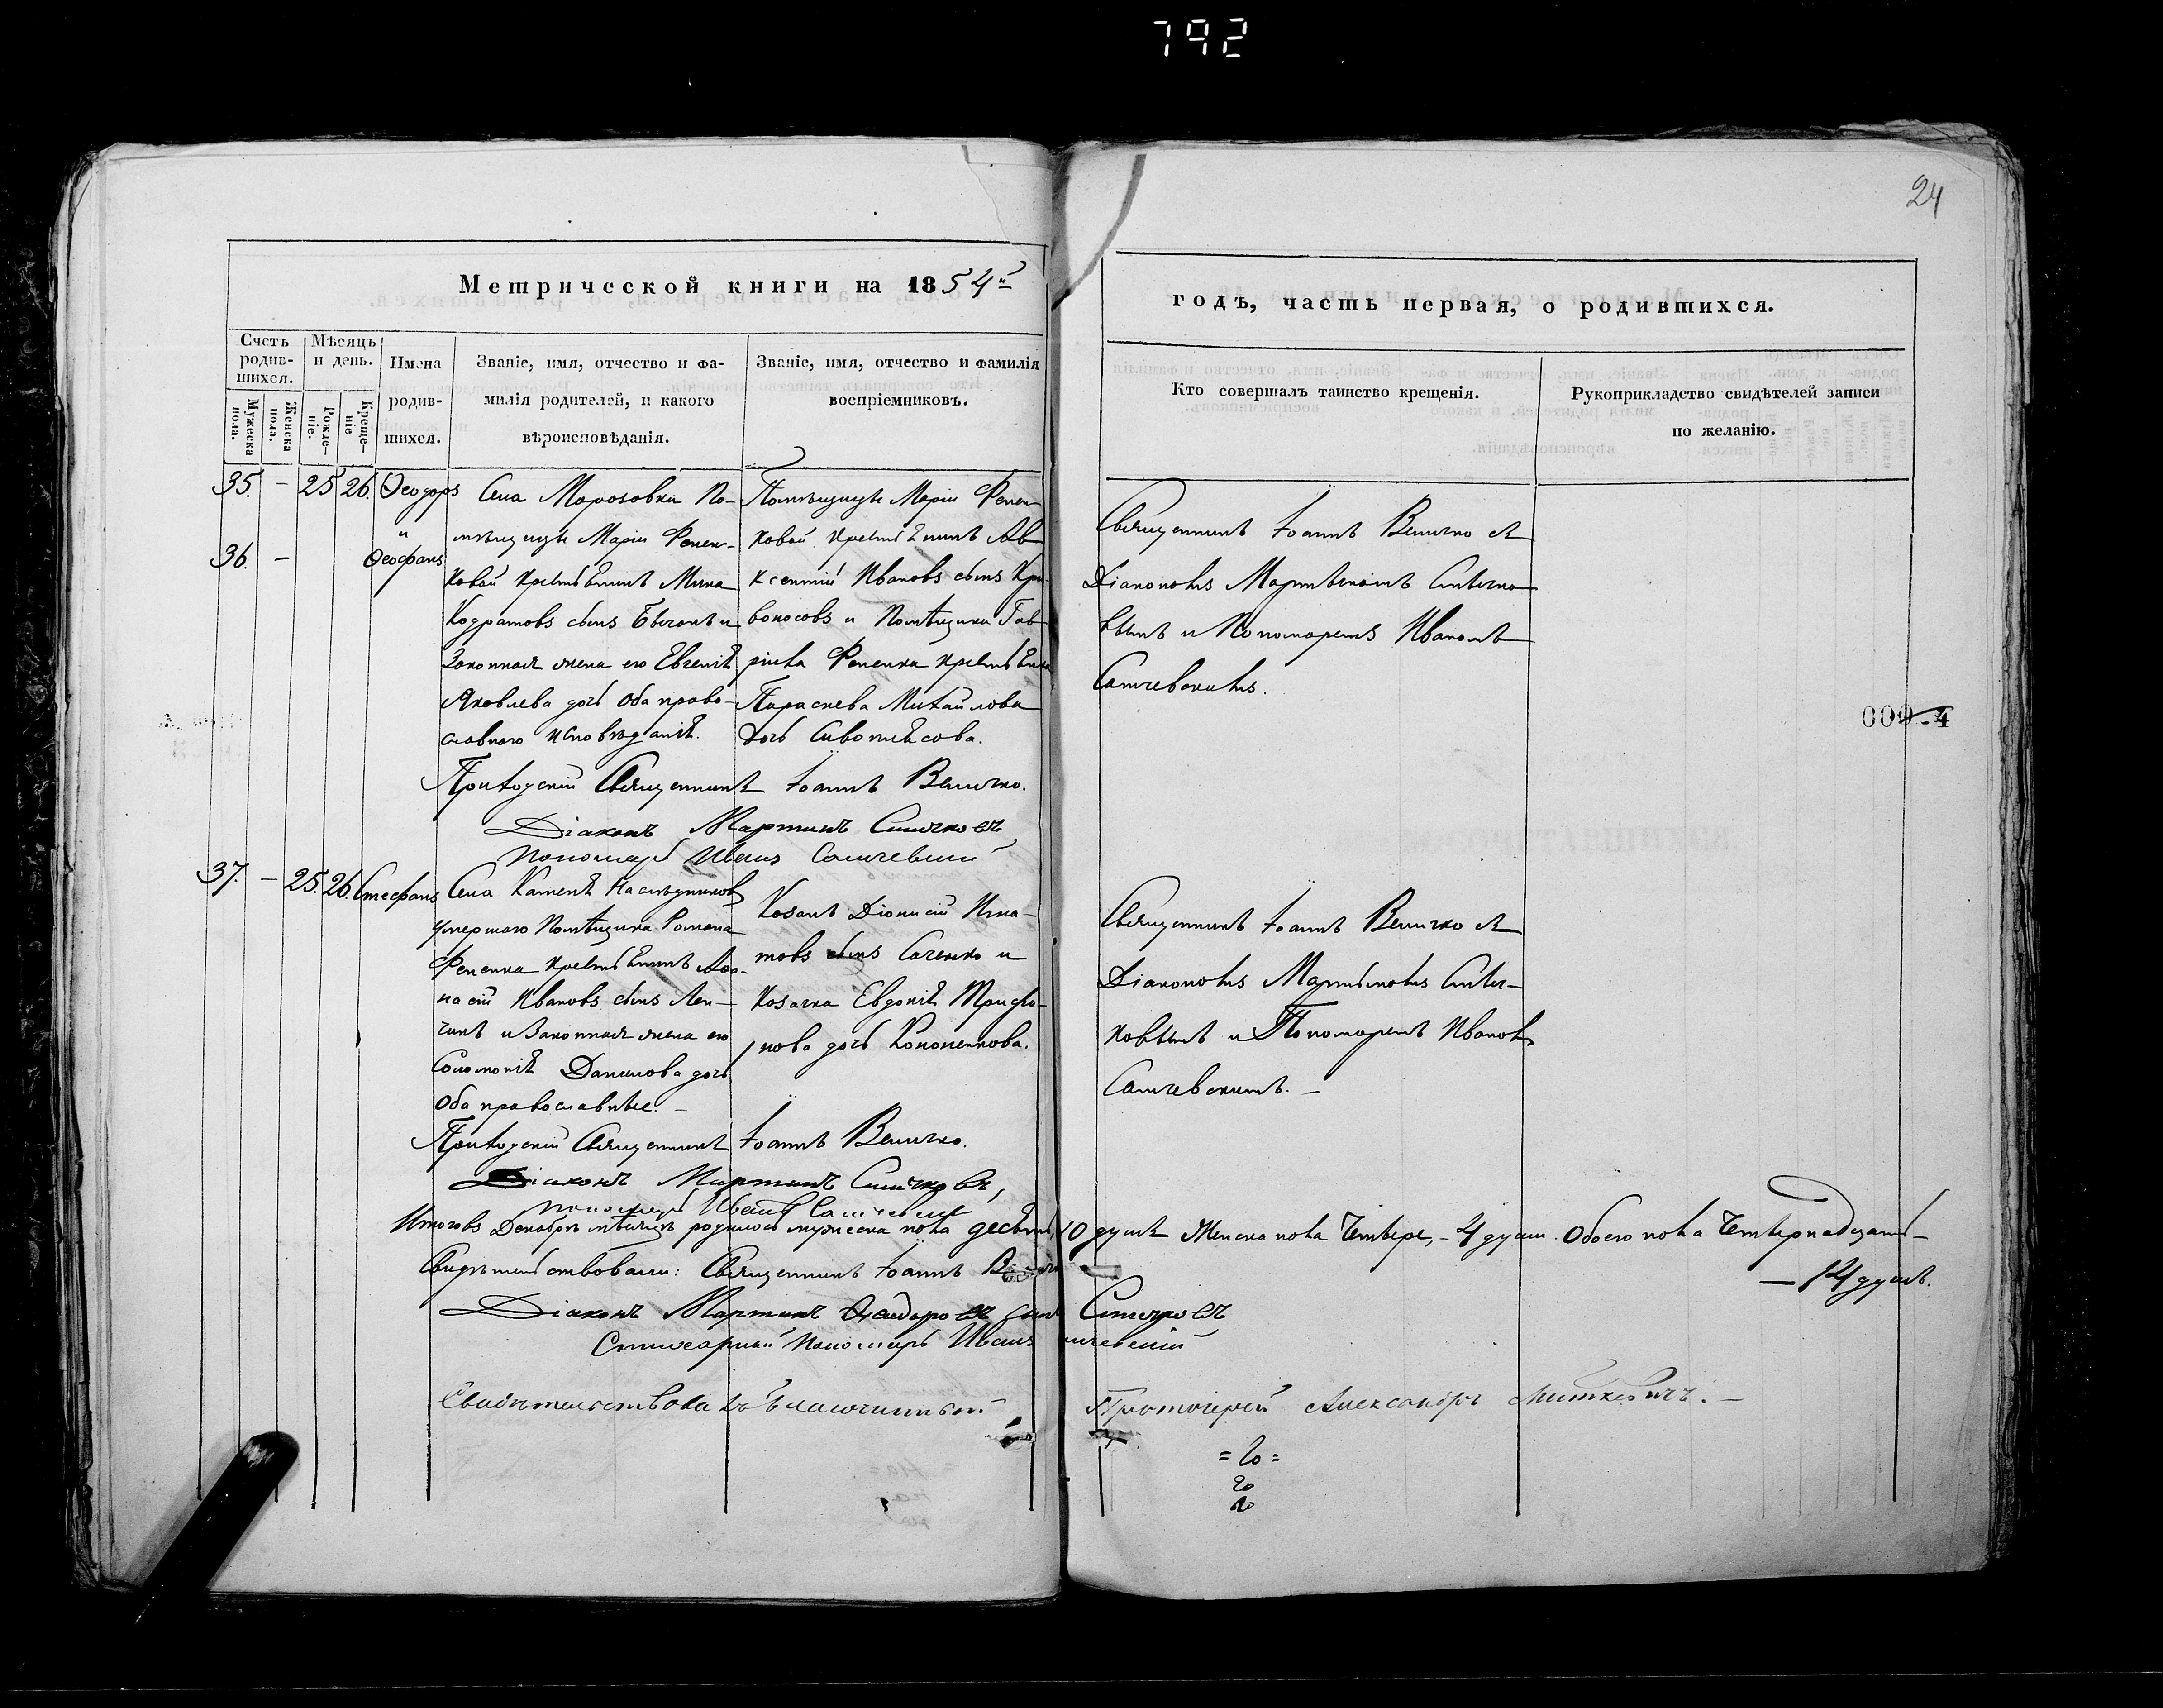 792
24
Метрической книги на 1854й
годъ, часть первая, о родившихся.
Счетъ родив-шихся.
Мѣсяцъ и день.
Мужеска пола.
Женска пола.
Рожде-ніе.
Креще-ніе
Имена родив-шихся.
Званіе, имя, отчество и фа-
милія родителей, и какого
вѣроисповѣданія.
Званіе, имя, отчество и фамилія
воспріемниковъ.
Кто совершалъ таинство крещенія.
Рукоприкладство свидѣтелей записи
по желанію.
35. - 25 26. Ѳеодоръ
и
36. - Ѳеофанъ
Села Морозовки По-
мѣщицы Маріи Репен-
ковой крестьянинъ Мина
Кодратовъ сынъ и
Законная жена его Евгенія
Яковлева дочь оба право-
славнаго исповѣданія.
Помѣщицы Маріи Репен-
ковой крестьянинъ Ав
ксентій Ивановъ сынъ Кри
воносовъ и Помѣщика Гав
ріила Репенка крестьянка
Параскева Михайлова
дочь
Священникъ Іоаннъ Величко съ
Діакономъ
вымъ и Пономаремъ Иваномъ
000-4
Приходскій Священникъ Іоаннъ Величко.
Діаконъ Мартинъ
Пономарь Иванъ
37. - 25. 26. Стефанъ
Села Каменя Наслѣдниковъ
умершаго Помѣщика Романа
Репенка крестьянинъ Аѳа-
насій Ивановъ сынъ
и Законная жена его
Соломонія Данилова дочь
Оба православные. -
Козакъ Діонисій Игна-
товъ сынъ Саченко и
Козачка Евдокія Трифо-
нова дочь Кононенкова.
Священникъ Іоаннъ Величко съ
Діакономъ Мартиномъ
ковымъ и Пономаремъ Иваномъ
Приходскій Священникъ Іоаннъ Величко.
Діаконъ Мартинъ
Пономарь Иванъ
Итого въ Декабрѣ мѣсяцѣ родилось мужеска пола десять, 10 душъ Женска пола Четыре, - 4 души. Обоего пола Четырнадцать -
- 14 душъ.
Свидѣтельствовали: Священникъ Іоаннъ
Діаконъ Мартинъ сынъ
Стихарный Пономарь Иванъ
Свидѣтельствовалъ Благочинный
Протоіерей Александръ Миткевичъ. -